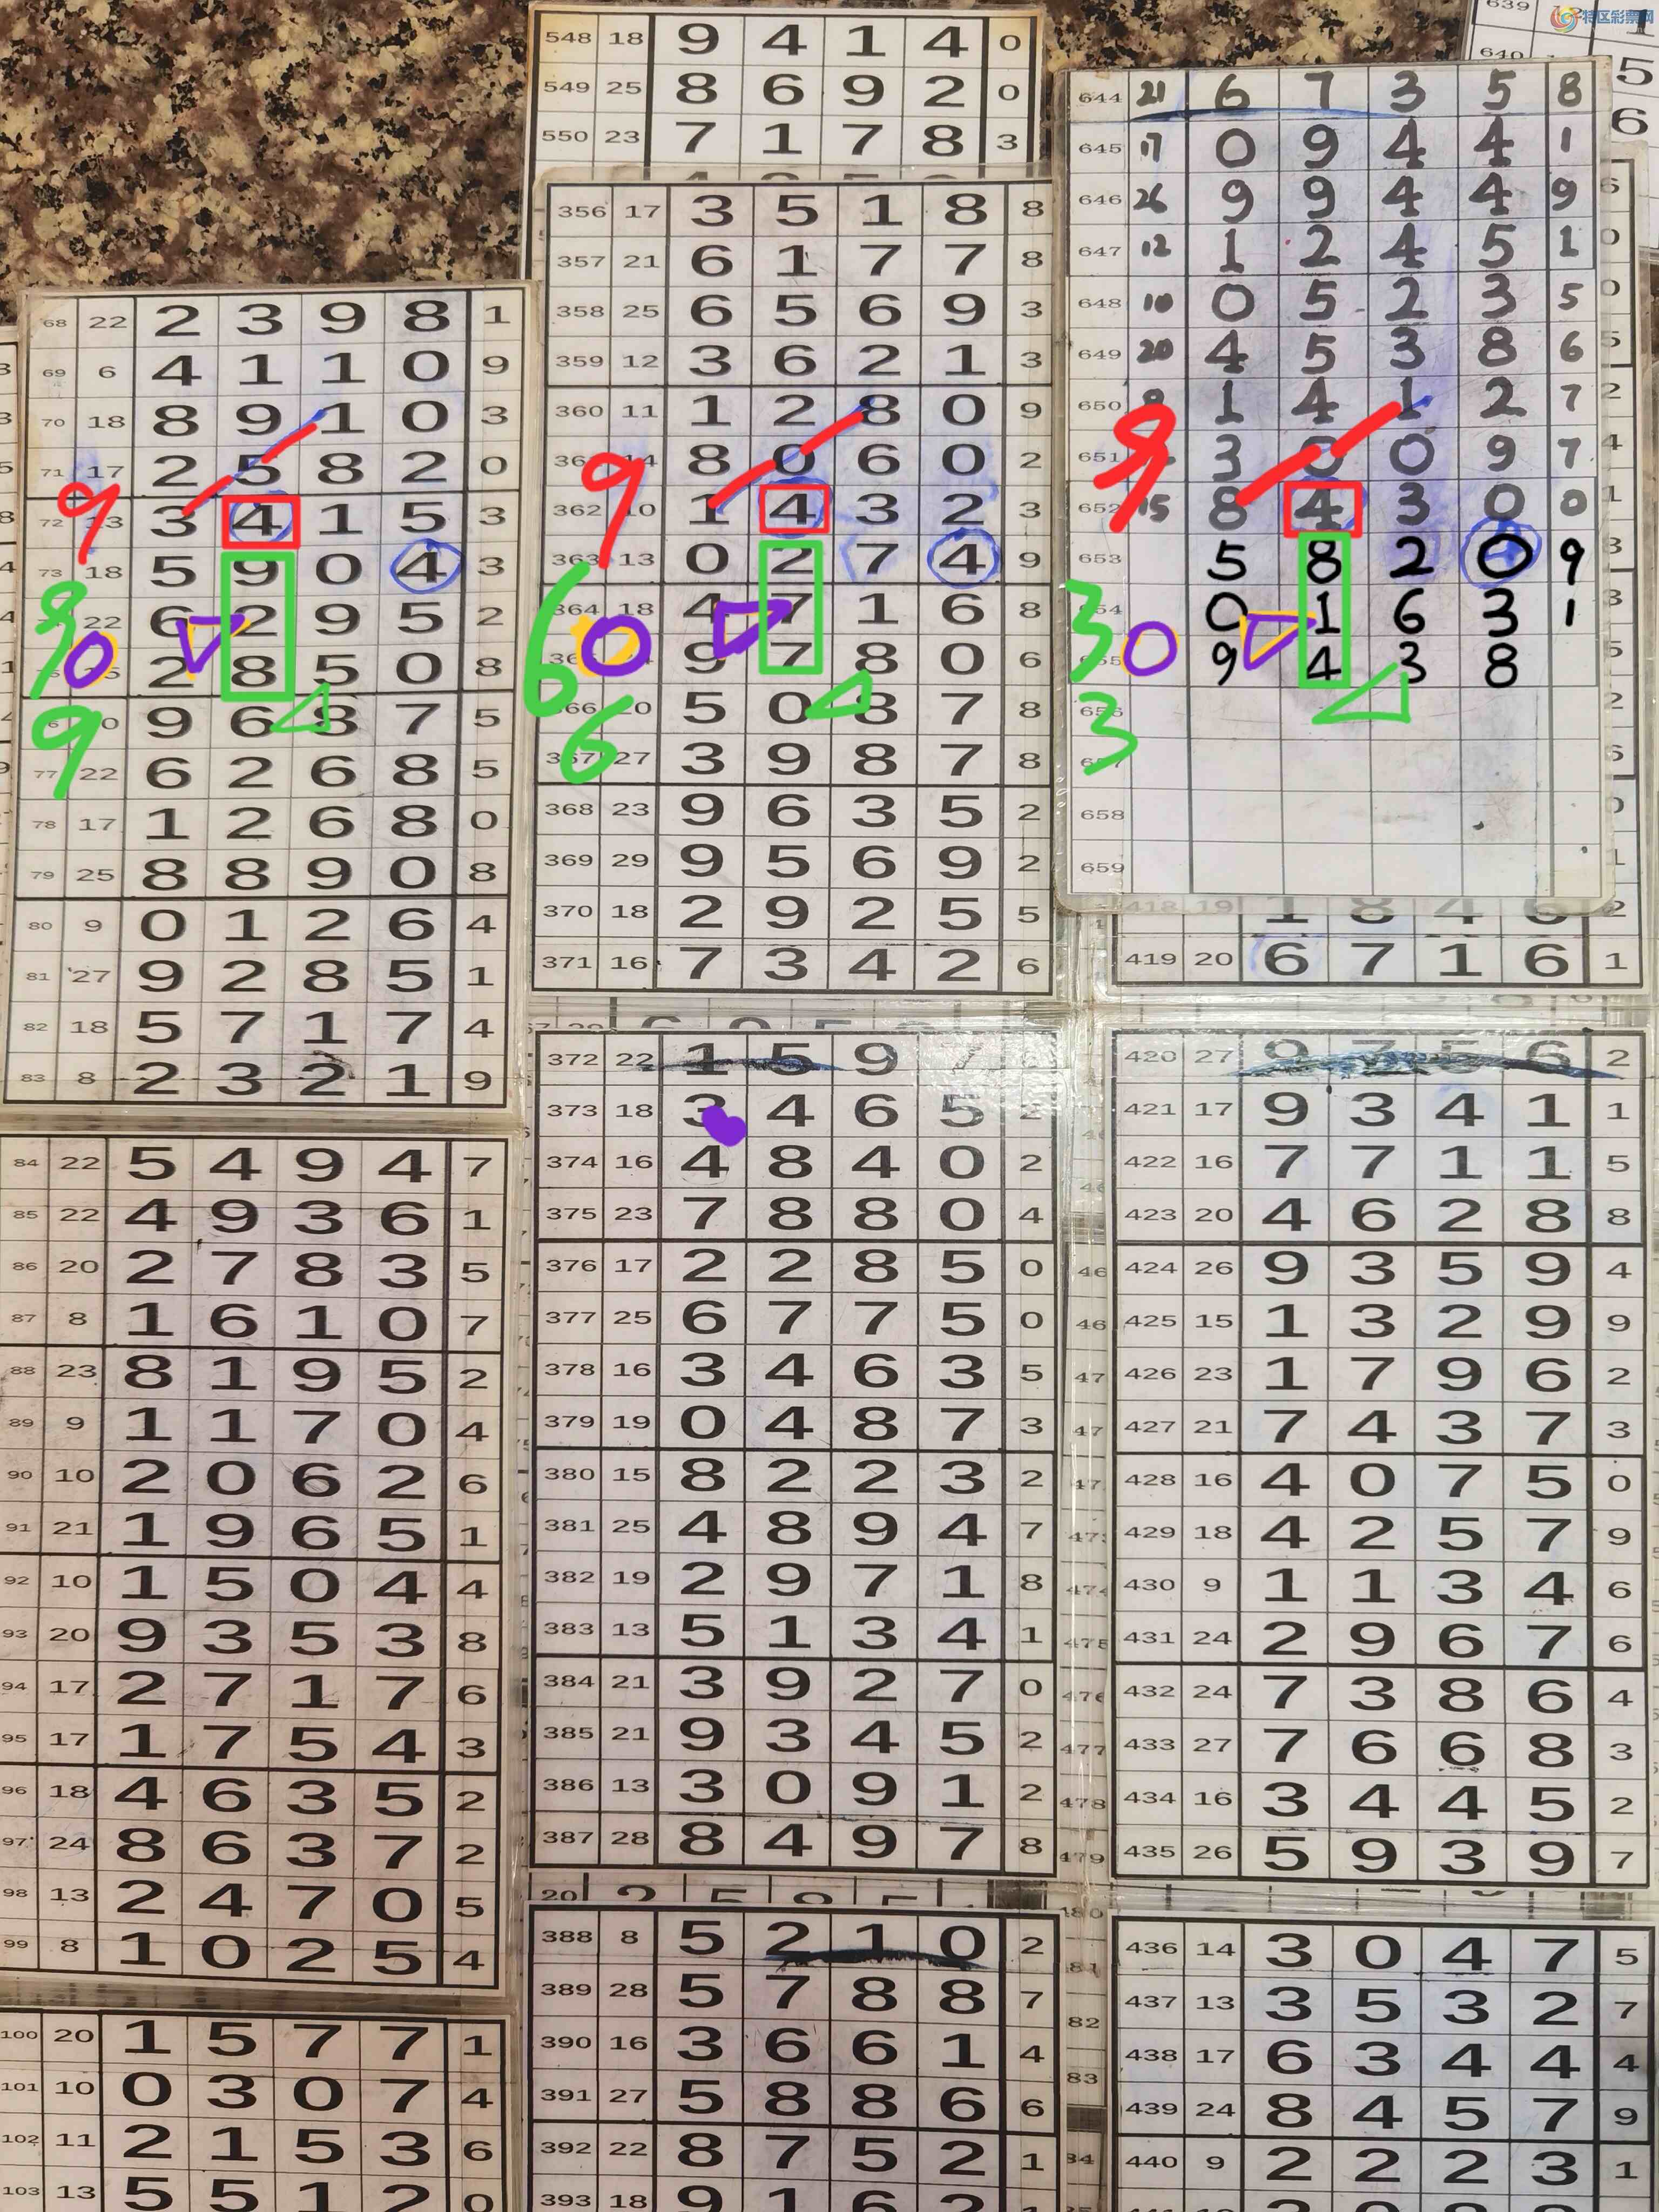 特区彩票网
639
640
548 18 9 4 1 4 0
549 25 8 6 9 2 0
550 23 7 1 7 8 3
68 22 2 3 9 8 1
69 6 4 1 1 0 9
70 18 8 9 1 0 3
71 17 2 5 8 2 0
72 13 3 4 1 5 3
73 18 5 9 0 4 3
22 6 2 9 5 2
2 8 5 0 8
9 6 8 7 5
77 22 6 2 6 8 5
78 17 1 2 6 8 0
79 25 8 8 9 0 8
80 9 0 1 2 6 4
81 27 9 2 8 5 1
82 18 5 7 1 7 4
83 8 2 3 2 1 9
9
9
0
9
84 22 5 4 9 4 7
85 22 4 9 3 6 1
86 20 2 7 8 3 5
87 8 1 6 1 0 7
88 23 8 1 9 5 2
89 9 1 1 7 0 4
90 10 2 0 6 2 6
91 21 1 9 6 5 1
92 10 1 5 0 4 4
93 20 9 3 5 3 8
94 17 2 7 1 7 6
95 17 1 7 5 4 3
96 18 4 6 3 5 2
97 24 8 6 3 7 2
98 13 2 4 7 0 5
99 8 1 0 2 5 4
100 20 1 5 7 7 1
101 10 0 3 0 7 4
102 11 2 1 5 3 6
103 13 5 5 1 2 0
356 17 3 5 1 8 8
357 21 6 1 7 7 8
358 25 6 5 6 9 3
359 12 3 6 2 1 3
360 11 1 2 8 0 9
14 8 0 6 0 2
362 10 1 4 3 2 3
363 13 0 2 7 4 9
364 18 4 7 1 6 8
9 7 8 0 6
366 20 5 0 8 7 8
367 27 3 9 8 7 8
368 23 9 6 3 5 2
369 29 9 5 6 9 2
370 18 2 9 2 5 5
371 16 7 3 4 2 6
9
6
0
6
372 22 1 5 9
373 18 3 4 6 5 2
374 16 4 8 4 0 2
375 23 7 8 8 0 4
376 17 2 2 8 5 0
377 25 6 7 7 5 0
378 16 3 4 6 3 5
379 19 0 4 8 7 3
380 15 8 2 2 3 2
381 25 4 8 9 4 7
382 19 2 9 7 1 8
383 13 5 1 3 4 1
384 21 3 9 2 7 0
385 21 9 3 4 5 2
386 13 3 0 9 1 2
387 28 8 4 9 7 8
388 8 5 2 1 0 2
389 28 5 7 8 8 7
390 16 3 6 6 1 4
391 27 5 8 8 6 6
392 22 8 7 5 2 1
393 18 9 1 6 2
644 21 6 7 3 5 8
645 17 0 9 4 4 1
646 26 9 9 4 4 9
647 12 1 2 4 5 1
648 10 0 5 2 3 5
649 20 4 5 3 8 6
650 1 4 1 2 7
651 3 0 0 9 7
652 15 8 4 3 0 0
653 5 8 2 0 9
0 1 6 3 1
9 4 3 8
658
659
9
3
0
3
418 19 1 8 4 6 2
419 20 6 7 1 6 1
420 27 9 7 5 6 2
421 17 9 3 4 1 1
422 16 7 7 1 1 5
423 20 4 6 2 8 8
424 26 9 3 5 9 4
425 15 1 3 2 9 9
426 23 1 7 9 6 2
427 21 7 4 3 7 3
428 16 4 0 7 5 0
429 18 4 2 5 7 9
430 9 1 1 3 4 6
431 24 2 9 6 7 6
432 24 7 3 8 6 4
433 27 7 6 6 8 3
434 16 3 4 4 5 2
435 26 5 9 3 9 7
436 14 3 0 4 7 5
437 13 3 5 3 2 7
438 17 6 3 4 4 4
439 24 8 4 5 7 9
440 9 2 2 2 3 1